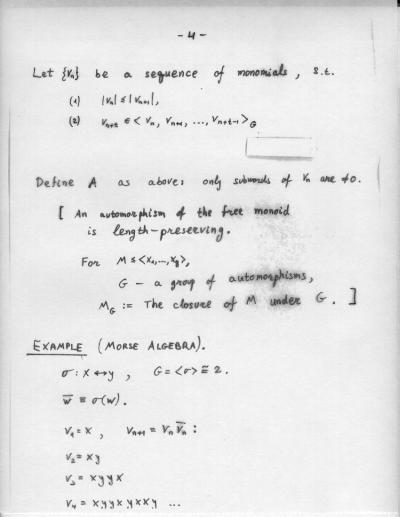 - 4 -
Let {Vₙ} be a sequence of monomials, s.t.
(1) |Vₙ| ≤ |Vₙ₊₁|,
(2) Vₙ₊ₜ ∈ < Vₙ, Vₙ₊₁, ..., Vₙ₊ₜ₋₁ >_G
Define A as above: only subwords of Vₙ are ≠0.
[ An automorphism of the free monoid
is length-preserving.
For M ≤ <x₁,...,x_g>,
G - a group of automorphisms,
M_G := The closure of M under G. ]
EXAMPLE (MORSE ALGEBRA).
σ: x ↔ y , G = <σ> ≅ 2.
w̅ ≡ σ(w).
V₁ = x , Vₙ₊₁ = Vₙ V̅ₙ :
V₂ = xy
V₃ = xyyx
V₄ = xyyxyxxy ...